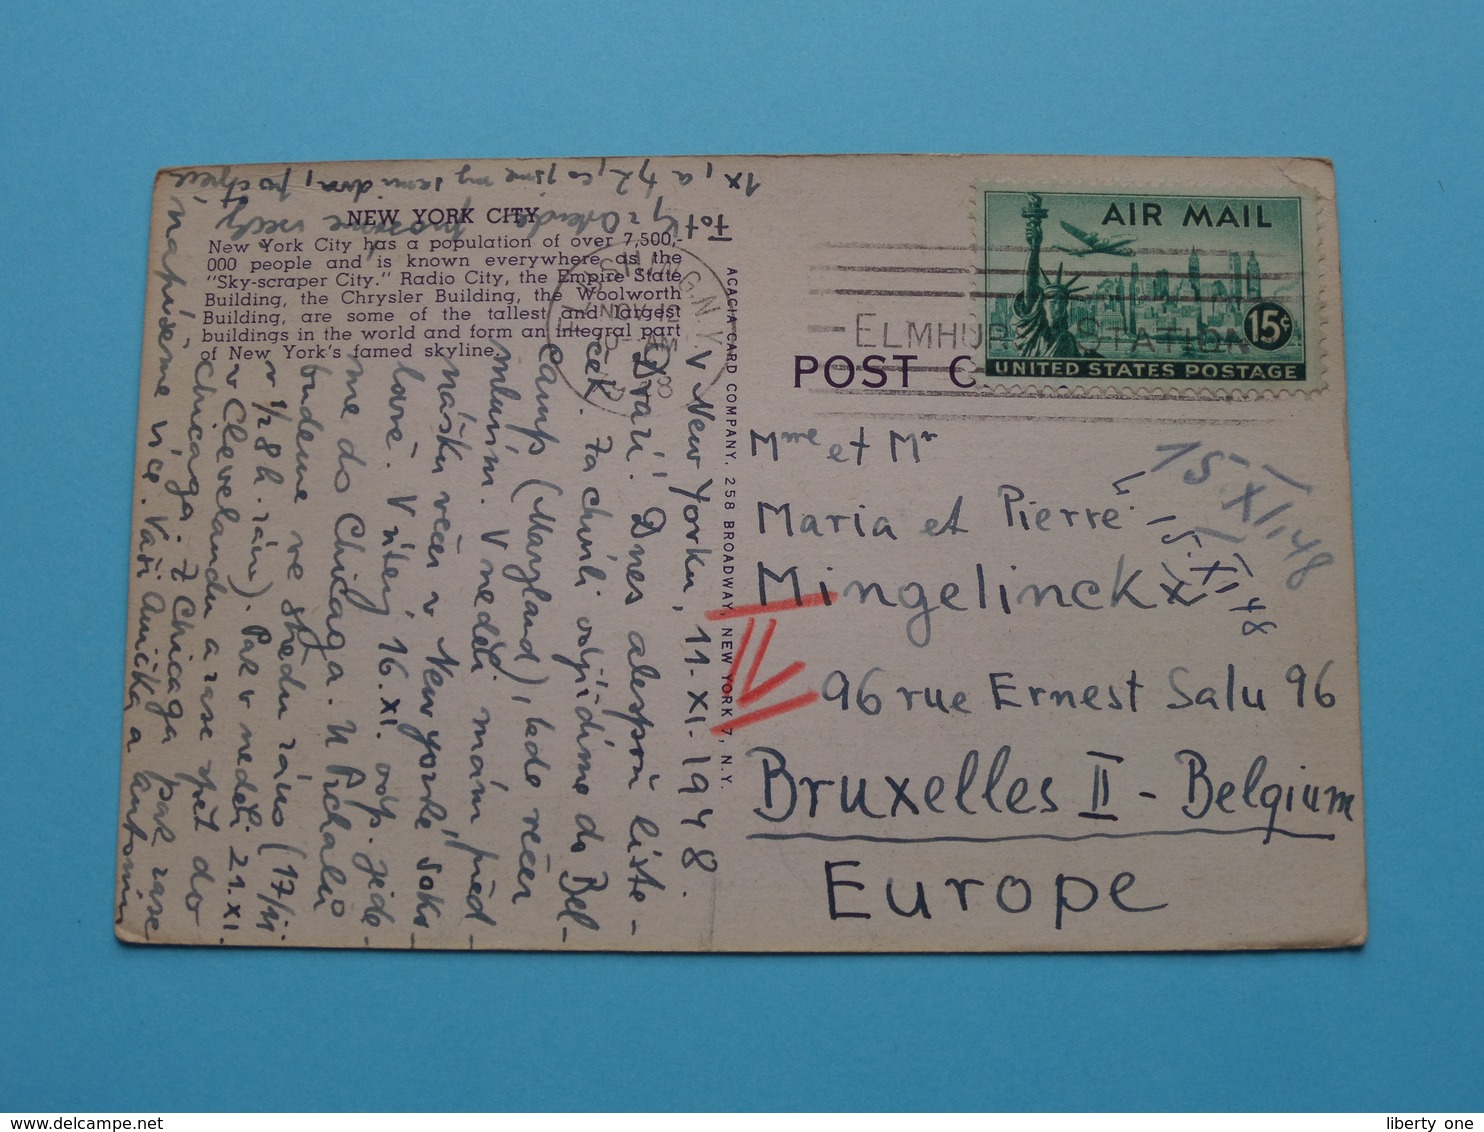 NEW YORK CITY
New York City has a population of over 7,500,-
000 people and is known everywhere as the
"Sky-scraper City." Radio City, the Empire State
Building, the Chrysler Building, the Woolworth
Building, are some of the tallest and largest
buildings in the world and form an integral part
of New York's famed skyline.
V New Yorku, 11.XI.1948.
Drazí! Dnes alespoň líste-
ček. Za chvíli odjíždíme do Bel-
camp (Maryland), kde večer
mluvím. V neděli mám před-
nášku večer v New yorké soko-
lovně. V úterý 16.XI. odp. jede-
me do Chicaga. U
budeme ve středu ráno (17/XI.
v 1/2 8 h. ráno). Pak v neděli 21.XI.
v Clevelandu a zase zpět do
Chicaga. Z Chicaga pak zase
napíšeme více. Vaši Anička a Antonín
Fotky z Ostende prosíme vždy
1x, a ty, co jsme my sami dva, po třech
ACACIA CARD COMPANY, 258 BROADWAY, NEW YORK 7, N.Y.
FLUSHING, N.Y.
NOV 12
AM
ELMHURST STATION
POST C
AIR MAIL
15¢
UNITED STATES POSTAGE
Mme et Mr
Maria et Pierre
Mingelinckx
96 rue Ernest Salu 96
Bruxelles II - Belgium
Europe
15.XI.48
15.XI.48
delcampe.net
liberty one